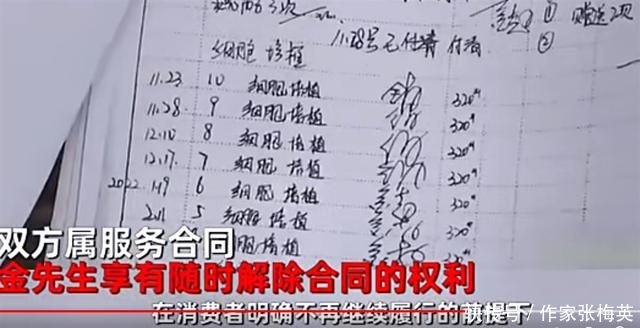 11.28号已付清 付清
① 赠送2项
②
细胞培植
11.23 10 细胞培植 320
11.28 9 细胞培植 320
12.10 8 细胞培植 320
12.17 7 细胞培植 320
2022 1.19 6 细胞培植 320
2.01 5 细胞培植 320
胞培植
双方属服务合同
金先生享有随时解除合同的权利
在消费者明确不再继续履行的前提下
快传号/作家张梅英